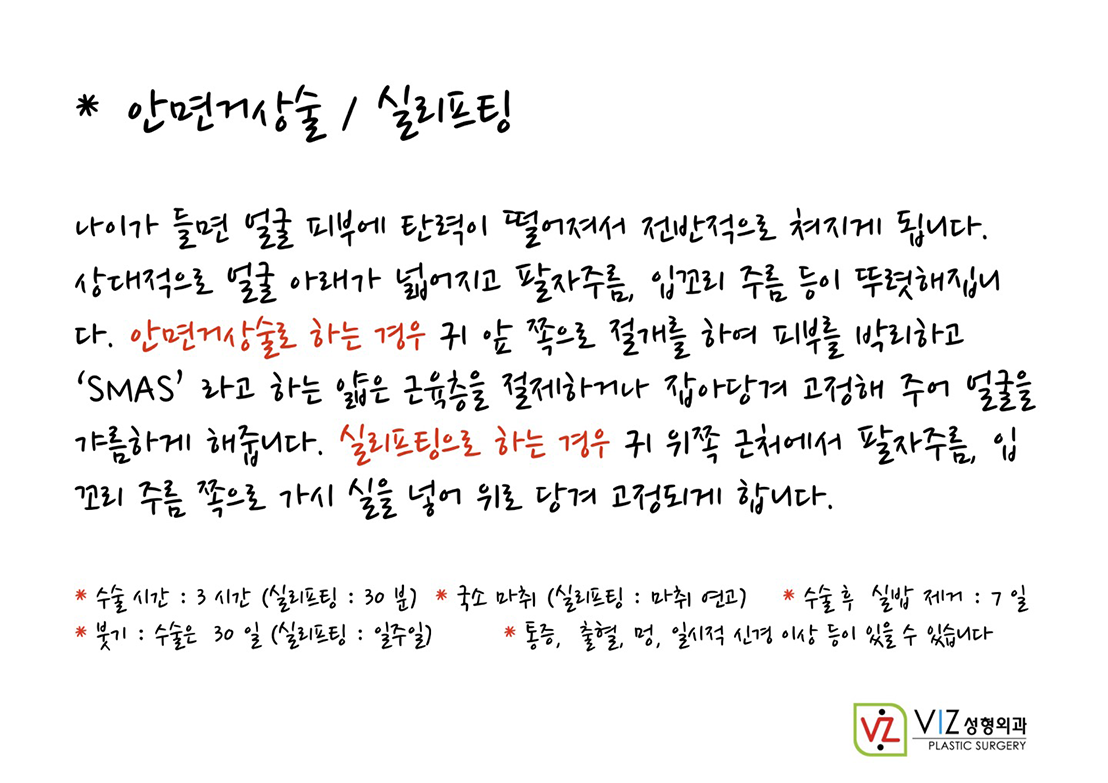 * 안면거상술 / 실리프팅
나이가 들면 얼굴 피부에 탄력이 떨어져서 전반적으로 쳐지게 됩니다.
상대적으로 얼굴 아래가 넓어지고 팔자주름, 입꼬리 주름 등이 뚜렷해집니
다. 안면거상술로 하는 경우 귀 앞 쪽으로 절개를 하여 피부를 박리하고
'SMAS' 라고 하는 얇은 근육층을 절제하거나 잡아당겨 고정해 주어 얼굴을
갸름하게 해줍니다. 실리프팅으로 하는 경우 귀 위쪽 근처에서 팔자주름, 입
꼬리 주름 쪽으로 가시 실을 넣어 위로 당겨 고정되게 합니다.
* 수술 시간 : 3 시간 (실리프팅 : 30 분) * 국소 마취 (실리프팅 : 마취 연고) * 수술 후 실밥 제거 : 7 일
* 붓기 : 수술은 30 일 (실리프팅 : 일주일) * 통증, 출혈, 멍, 일시적 신경 이상 등이 있을 수 있습니다
VZ VIZ 성형외과
PLASTIC SURGERY